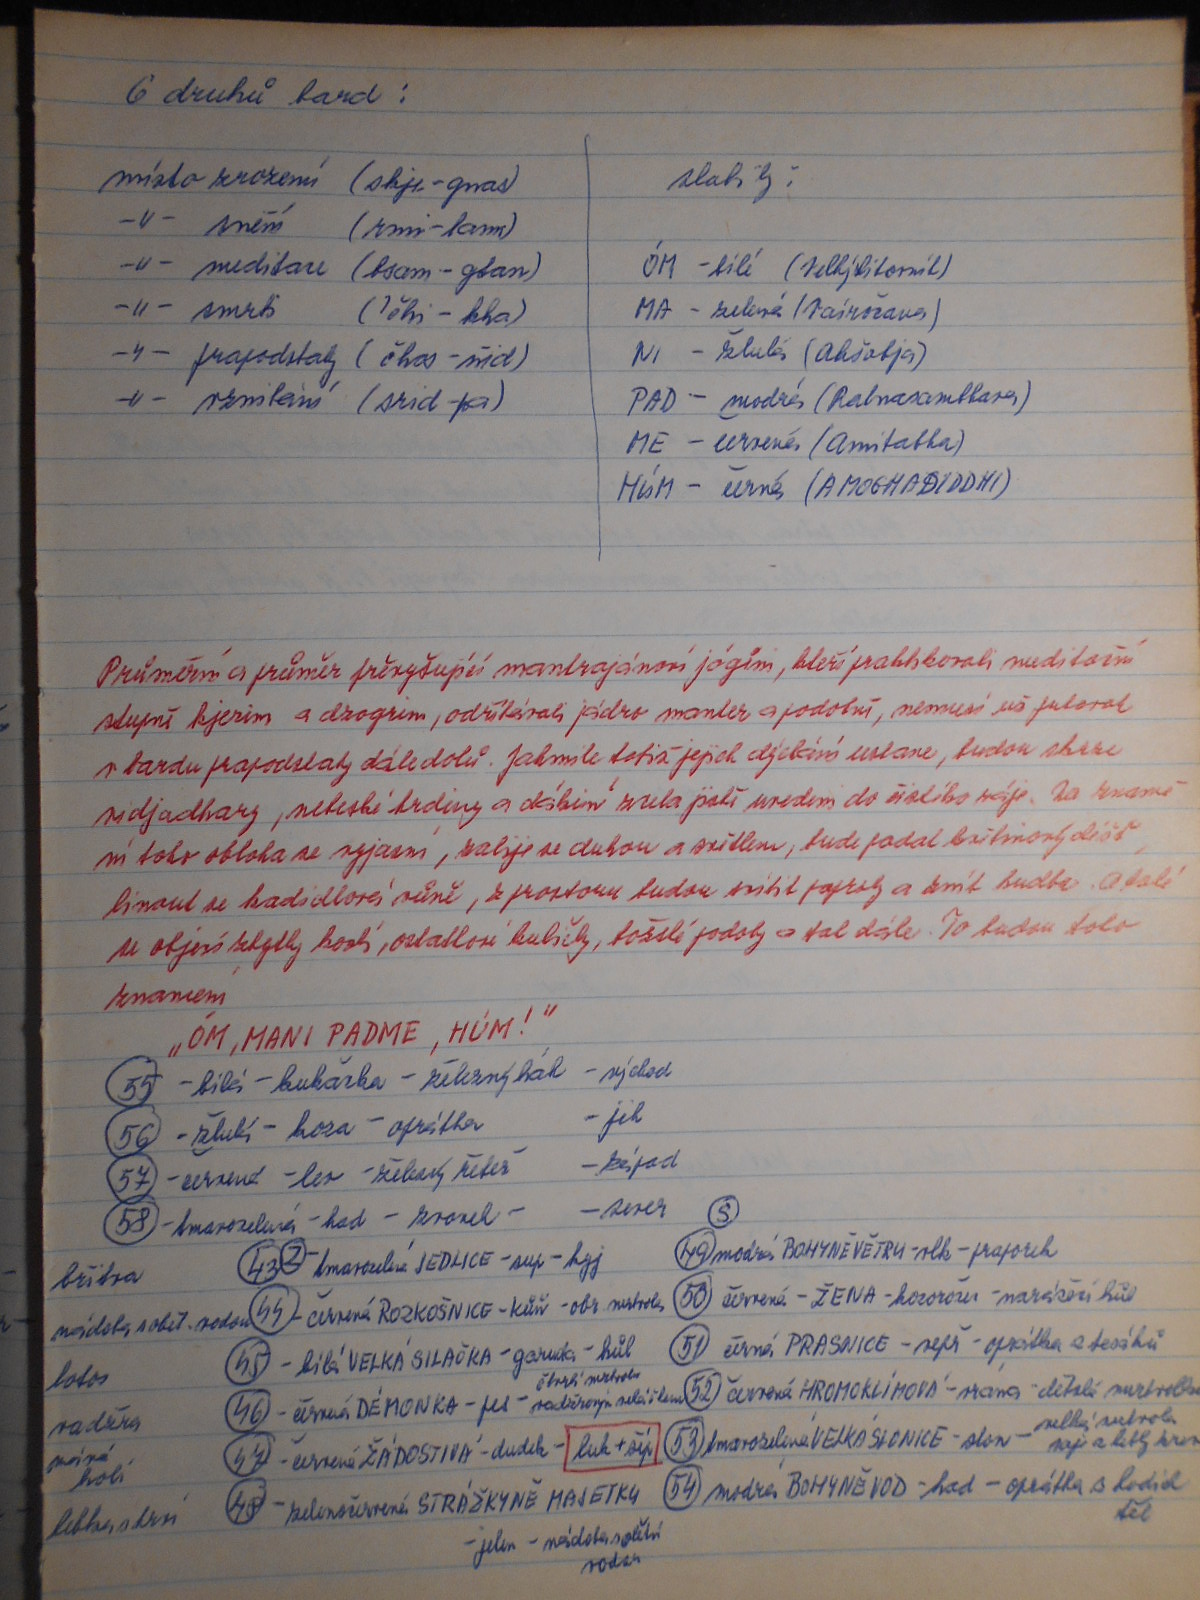 6 druhů bard:
místo zrození (skje-gnas)
-"- snění (rmi-lam)
-"- meditace (bsam-gtan)
-"- smrti ('čhi-kha)
-"- prapodstaty (čhos-ňid)
-"- vznikání (srid-pa)
slabiky:
ÓM - bílé (Velký
MA - zelená (Vairóčana)
NI - žlutá (Akšobja)
PAD - modrá (Ratnasambhava)
ME - červená (Amitabha)
HÚM - černá (AMOGHASIDDHI)
Průměrní a průměr převyšující mantrajánoví jógíni, kteří praktikovali meditační
stupně kjerim a dzogrim, odříkávali jádro manter a podobně, nemusí už putovat
v bardu prapodstaty dále dolů. Jakmile totiž jejich dýchání ustane, budou skrze
vidjadhary, nebeské hrdiny a dákiní zcela jistě uvedeni do čistého ráje. Za znamé-
ní toho obloha se vyjasní, zalije se duhou a světlem, bude padat květinový déšť,
linout se kadidlová vůně, z prostoru budou svítit paprsky a znít hudba. A také
se objeví zbytky kostí, ostatkové kuličky, božské podoby a tak dále. To budou toho
znamení
„ÓM, MANI PADME, HÚM!"
55 - bílá - kukačka - železný hák - východ
56 - žlutá - koza - oprátka - jih
57 - červená - lev - železný řetěz - západ
58 - tmavozelená - had - zvonek - - sever
S
břitva
43 Z - tmavozelená JEDLICE - sup - kyj
49 modrá BOHYNĚ VĚTRU - vlk - praporek
nádoba s obět. vodou
44 - červená ROZKOŠNICE - kůň - obr. mrtvola
50 červená - ŽENA - kozorožec - narážecí kůl
lotos
45 - bílá VELKÁ SILAČKA - garuda - hůl
51 černá PRASNICE - vepř - oprátka z tesáků
vadžra
46 - červená DÉMONKA - pes -
52 červená HROMOKLÍNOVÁ - vrána - dětská mrtvolka
47 - červená ŽÁDOSTIVÁ - dudek - luk + šíp
53 tmavozelená VELKÁ SLONICE - slon - velká mrtvola
holí
48 - zelenočervená STRÁŽKYNĚ MAJETKU
54 modrá BOHYNĚ VOD - had - oprátka z hadích
těl
lebka s krví
- jelen - nádoba s obětní
vodou